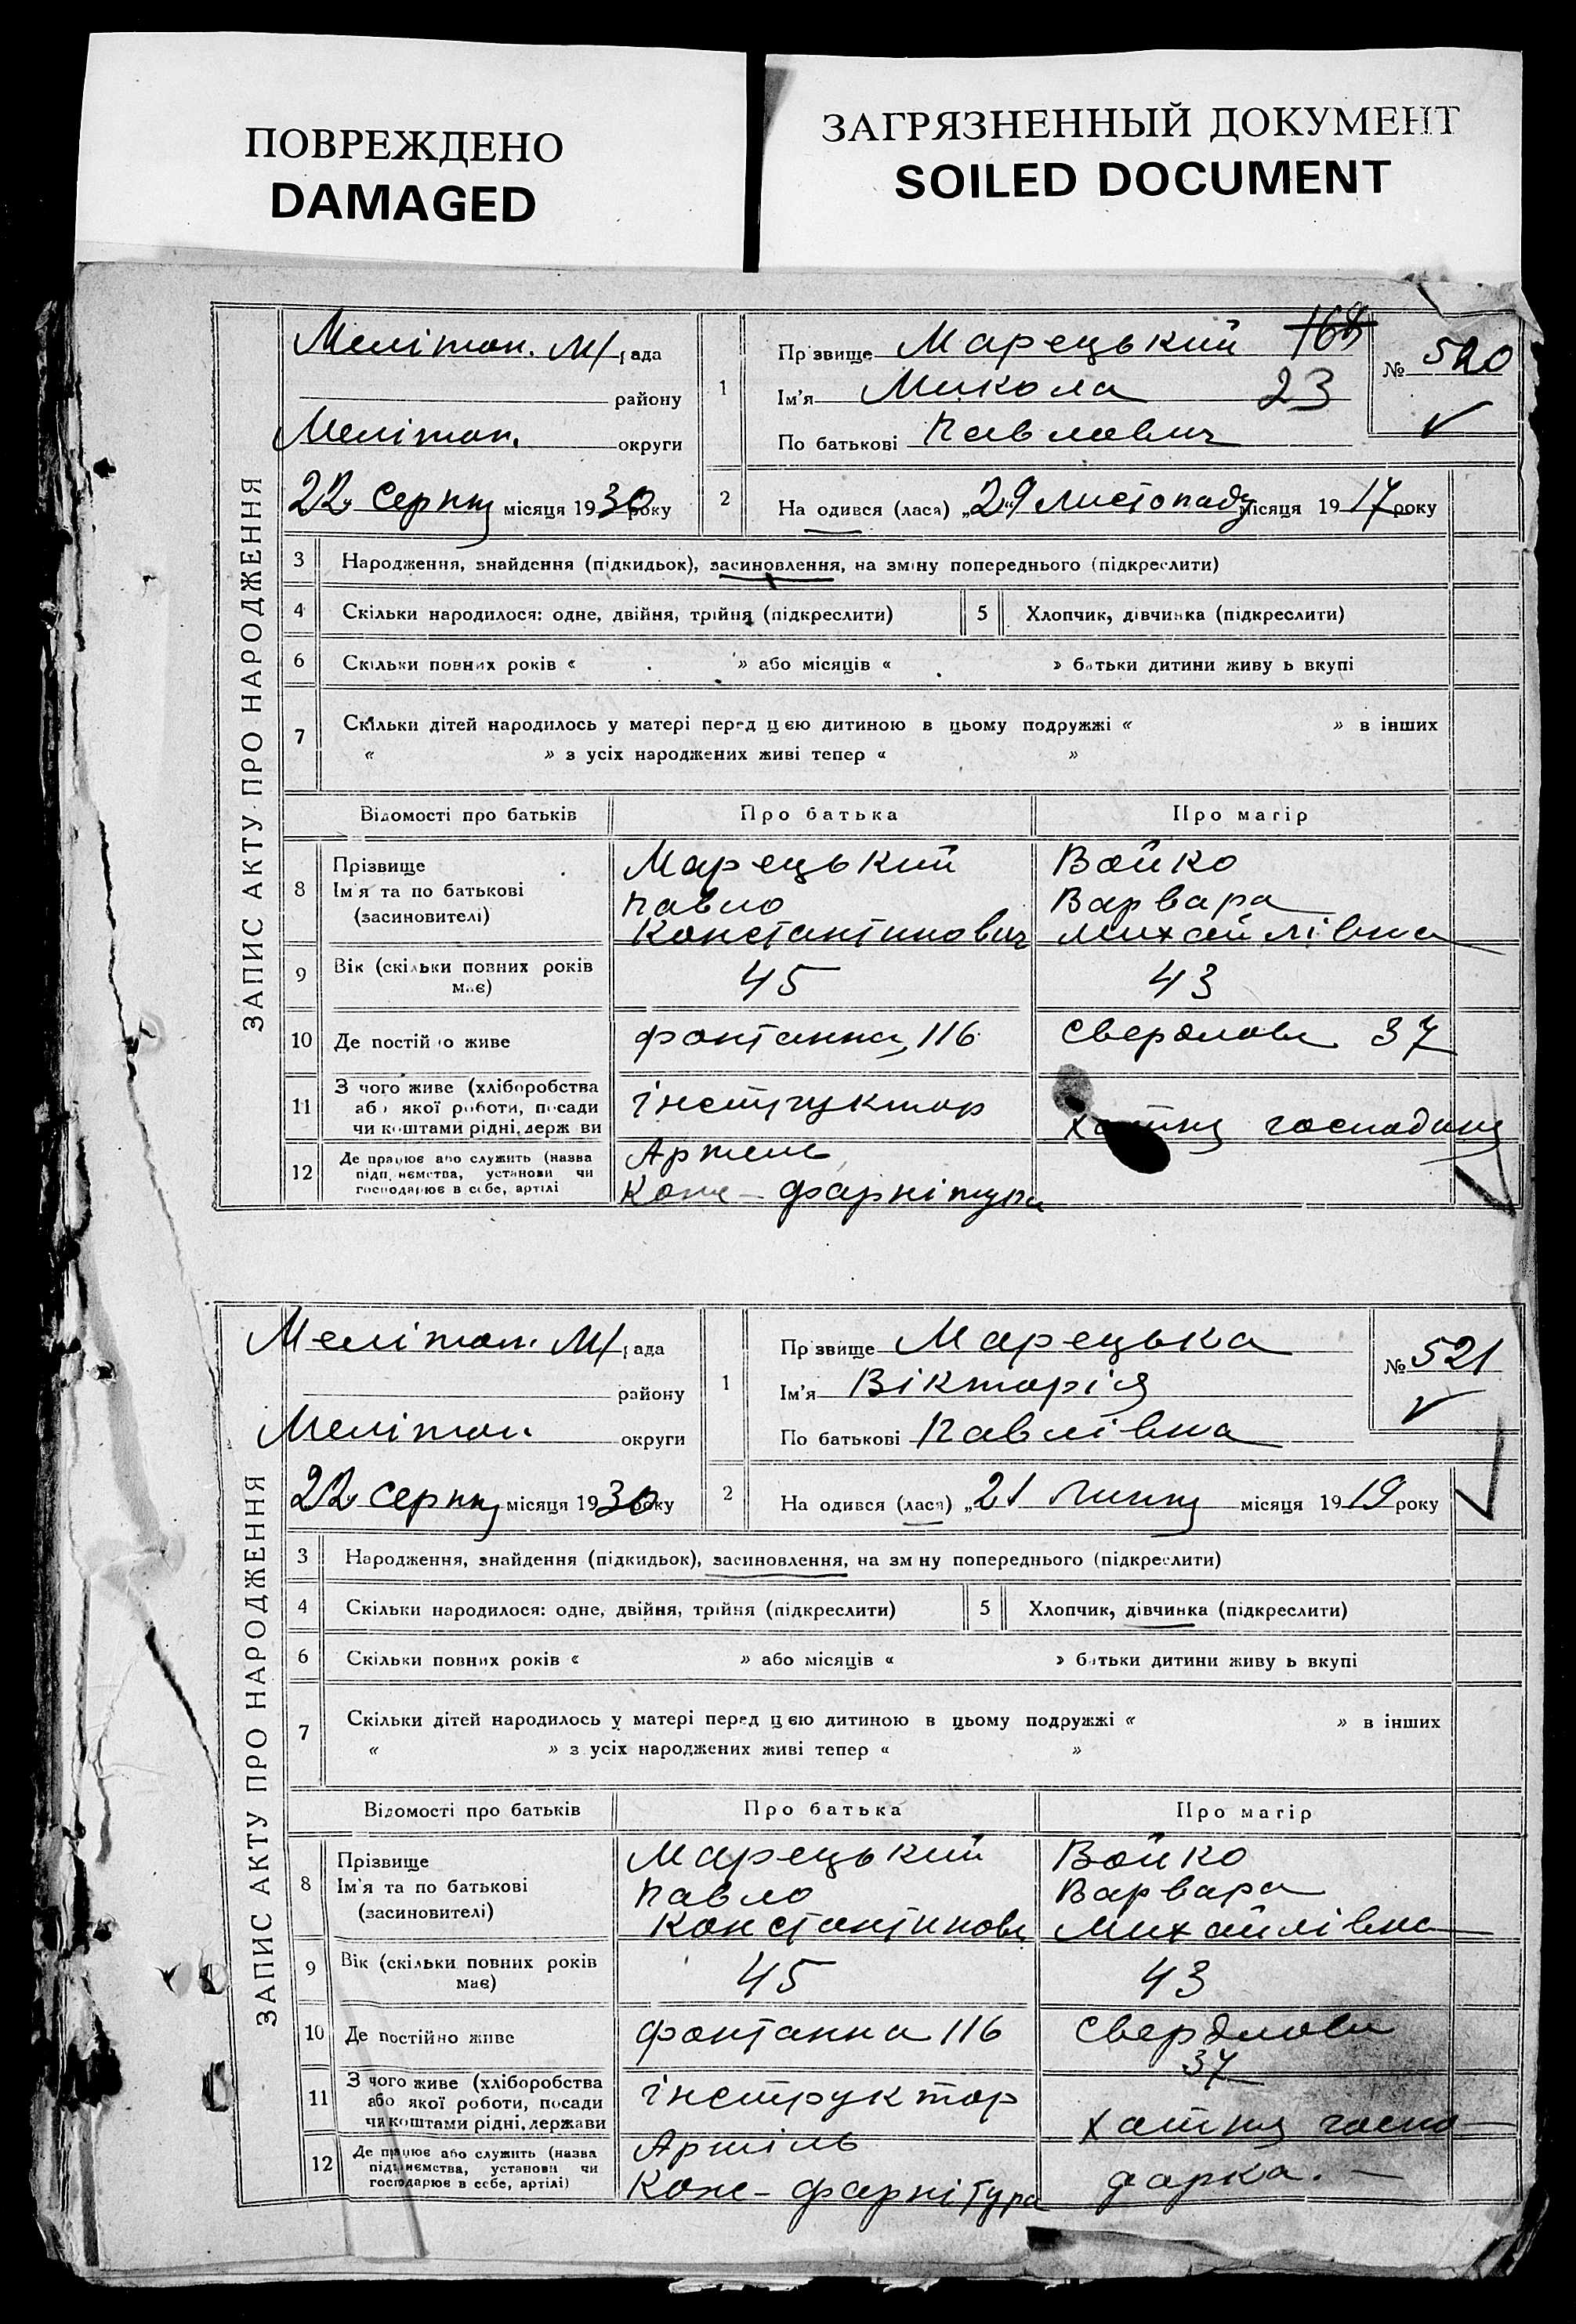 ПОВРЕЖДЕНО
DAMAGED
ЗАГРЯЗНЕННЫЙ ДОКУМЕНТ
SOILED DOCUMENT
ЗАПИС АКТУ ПРО НАРОДЖЕННЯ
Меліtоп. М/рада
району
Меліtоп. округи
22 серпня місяця 1930 року
1
Прізвище Марецький 168
Ім'я Микола 23
По батькові Павлович
№ 520
2 На одився (лася) „29 листопаду місяця 1917 року
3 Народження, знайдення (підкидьок), засиновлення, на зміну попереднього (підкреслити)
4 Скільки народилося: одне, двійня, трійня (підкреслити) 5 Хлопчик, дівчинка (підкреслити)
6 Скільки повних років « » або місяців « » батьки дитини живу ь вкупі
7 Скільки дітей народилось у матері перед цею дитиною в цьому подружжі « » в інших
« » з усіх народжених живі тепер « »
Відомості про батьків Про батька Про матір
8 Прізвище
Ім'я та по батькові
(засиновителі)
Марецький
Павло
Константинович
Бойко
Варвара
Михайлівна
9 Вік (скільки повних років
має)
45 43
10 Де постійно живе фонтанна, 116 Свердлова 37
11 З чого живе (хліборобства
або якої роботи, посади
чи коштами рідні, держ ви
інструктор
хатня господиня
12 Де працює або служить (назва
підп иємства, установи чи
господарює в себе, артілі
Артель
Кож-фарнітура
ЗАПИС АКТУ ПРО НАРОДЖЕННЯ
Меліtоп. М/рада
району
Меліtоп. округи
22 серпня місяця 1930 року
1
Прізвище Марецька
Ім'я Вікторія
По батькові Павлівна
№ 521
2 На одився (лася) „21 липня місяця 1919 року
3 Народження, знайдення (підкидьок), засиновлення, на зміну попереднього (підкреслити)
4 Скільки народилося: одне, двійня, трійня (підкреслити) 5 Хлопчик, дівчинка (підкреслити)
6 Скільки повних років « » або місяців « » батьки дитини живу ь вкупі
7 Скільки дітей народилось у матері перед цею дитиною в цьому подружжі « » в інших
« » з усіх народжених живі тепер « »
Відомості про батьків Про батька Про матір
8 Прізвище
Ім'я та по батькові
(засиновителі)
Марецький
Павло
Константинов
Бойко
Варвара
Михайлівна
9 Вік (скільки повних років
має)
45 43
10 Де постійно живе фонтанна 116 Свердлова
37
11 З чого живе (хліборобства
або якої роботи, посади
чи коштами рідні, держави
інструктор
хатня госпо
12 Де працює або служить (назва
підприємства, установи чи
господарює в себе, артілі)
Артіль
Кож-фарнітура
дарка. —